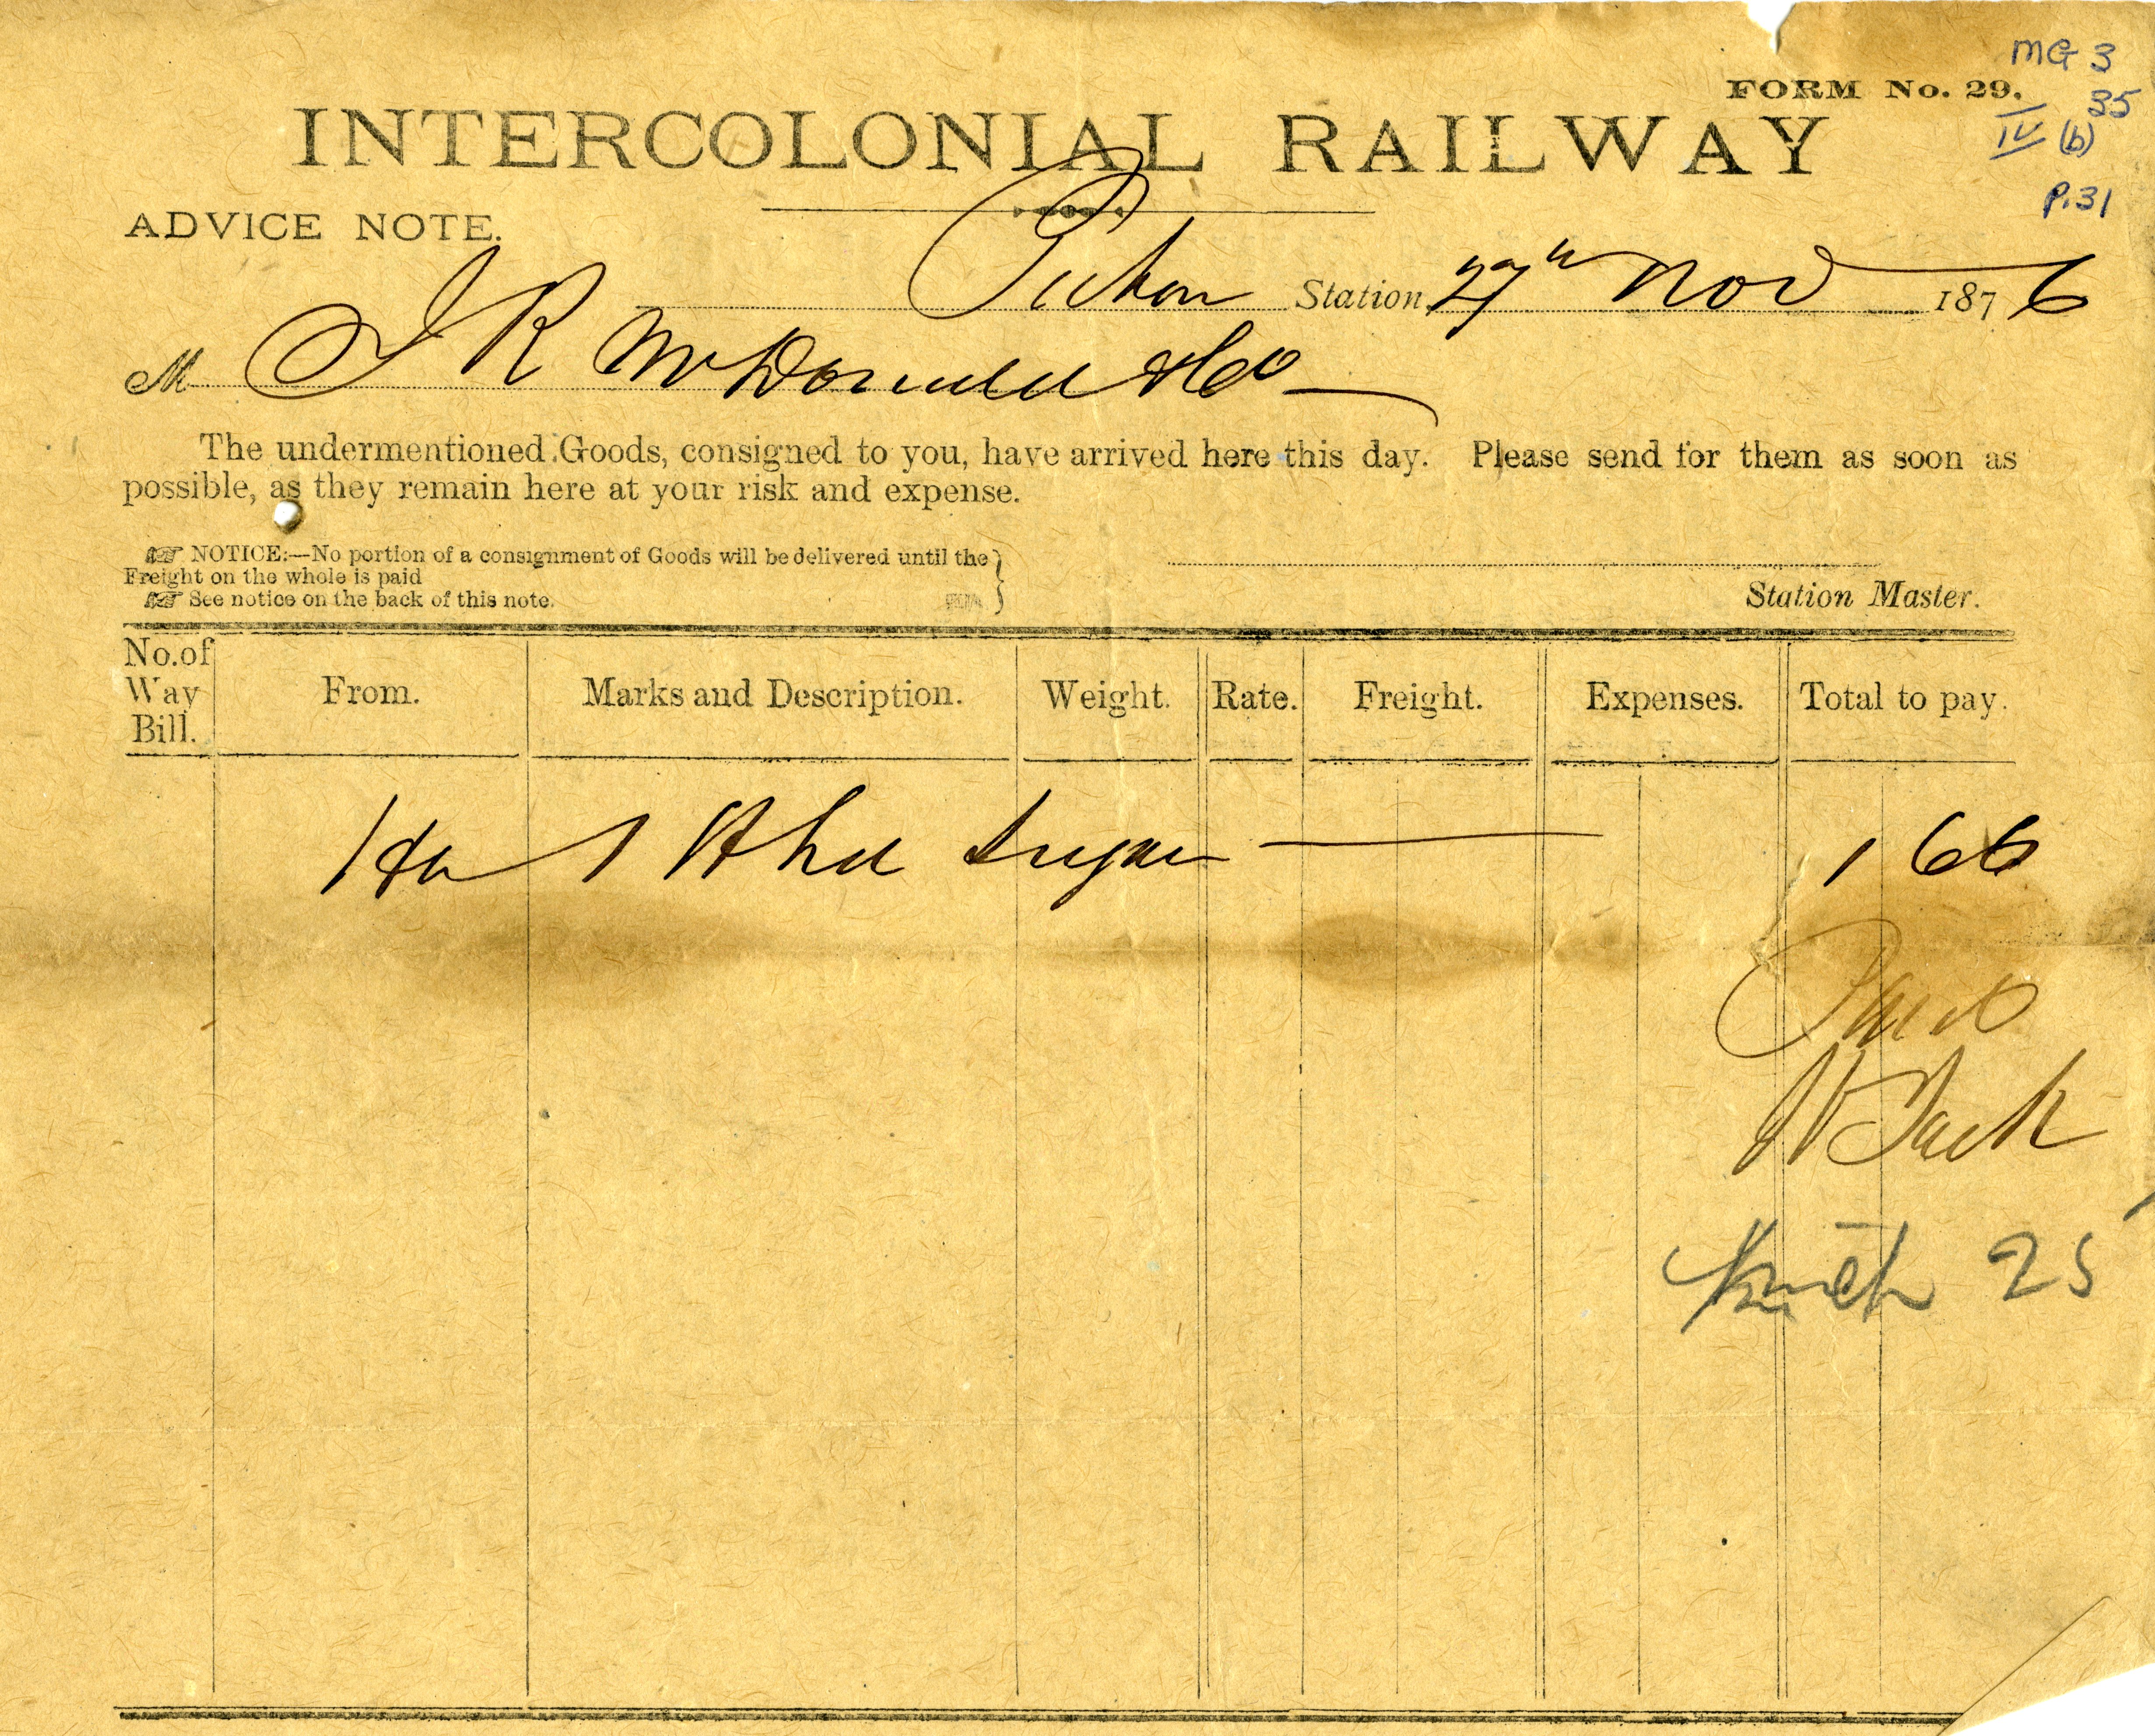 MG 3
FORM No. 29.
35
IV (b)
P.31
INTERCOLONIAL RAILWAY
ADVICE NOTE.
Pictou Station, 27th Nov 1876
M J R McDonald & Co
The undermentioned Goods, consigned to you, have arrived here this day. Please send for them as soon as
possible, as they remain here at your risk and expense.
☞ NOTICE:—No portion of a consignment of Goods will be delivered until the
Freight on the whole is paid
☞ See notice on the back of this note.
Station Master.
No. of Way Bill. From. Marks and Description. Weight. Rate. Freight. Expenses. Total to pay.
Hx 1 Hhd Sugar 1 66
Paid
Truck 25